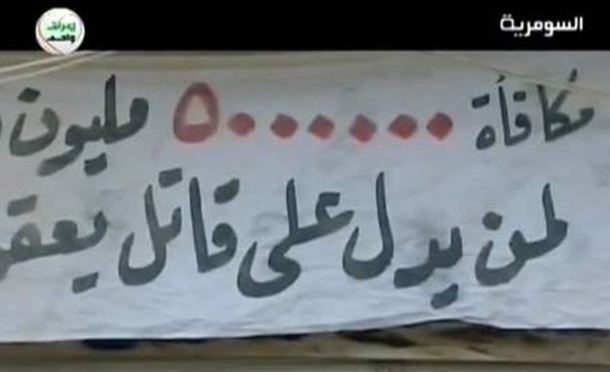 السومرية
مكافأة ٥٠٠٠٠٠٠ مليون
لمن يدل على قاتل يعقو